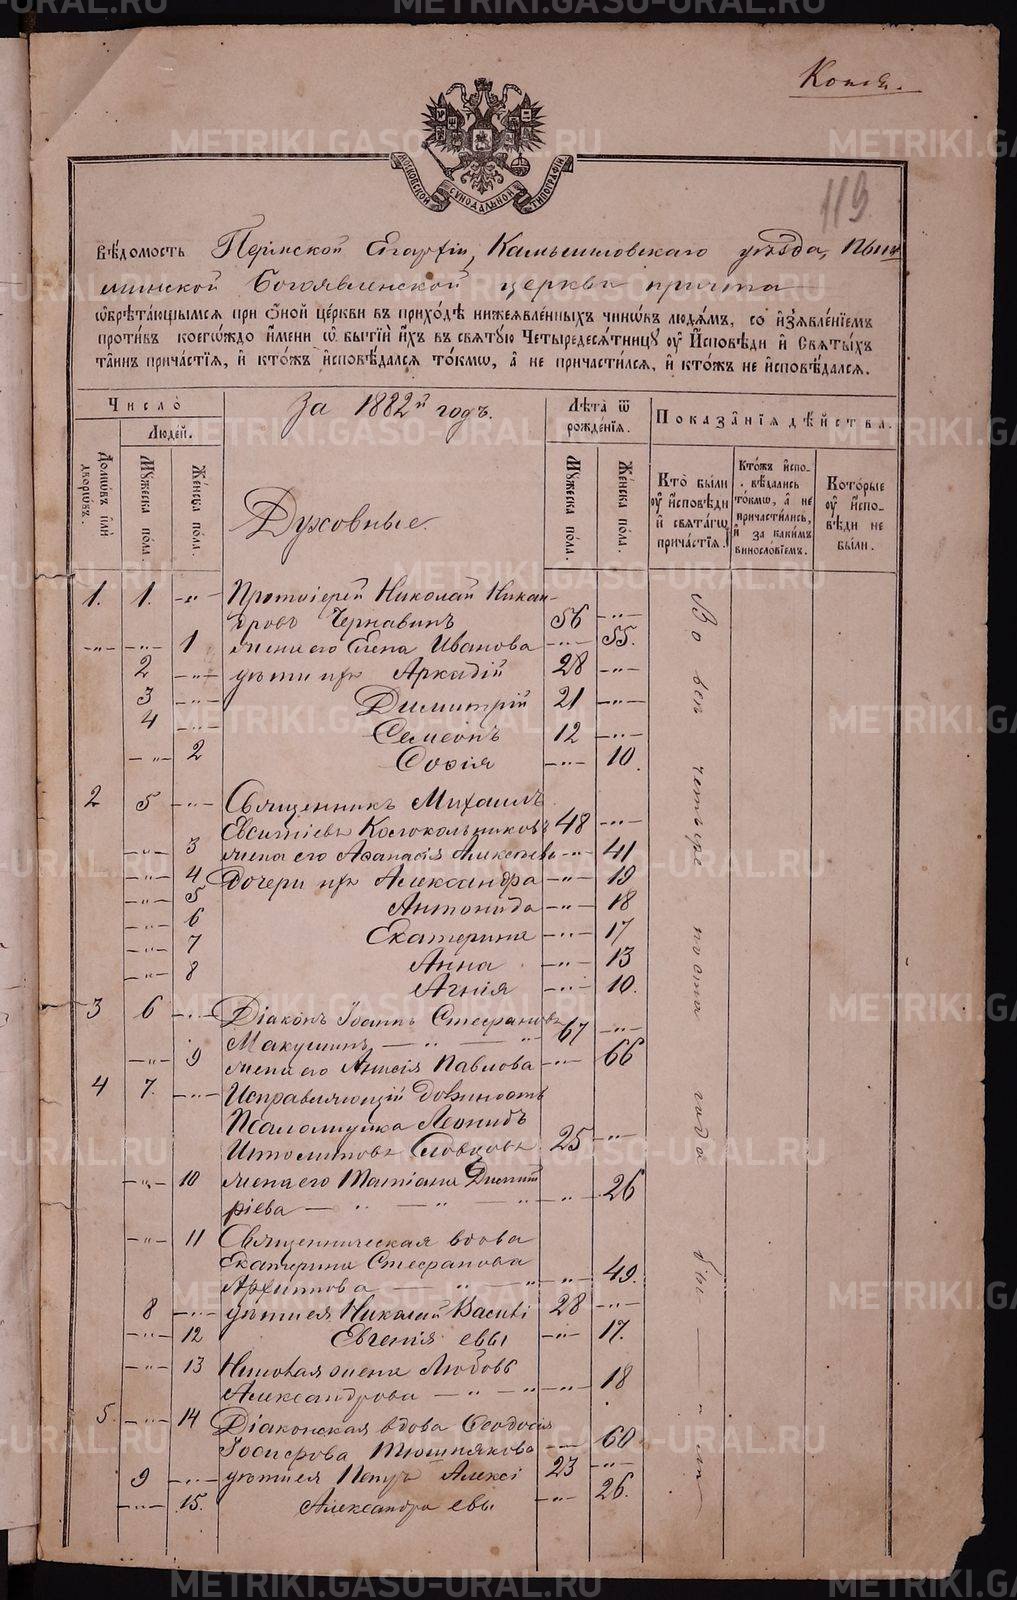 Копія.
МОСКОВСКОЙ СѴНОДАЛЬНОЙ ТИПОГРАФІИ
119.
Вѣдомость Пермской Епархіи, Камышловскаго уѣзда, Пыш-
минской Богоявленской церкви причта
ѡбрѣтающымсѧ при оной церкви въ приходѣ нижеявленныхъ чинѡвъ людѧмъ, со изъявленіемъ
противъ коегѡждо имени ѡ бытіи ихъ въ свѧтую Четыредесѧтницу оу Исповѣди и Свѧтыхъ
таинъ причастіѧ, и ктожъ исповѣдалсѧ токмѡ, а не причастилсѧ, и ктожъ не исповѣдалсѧ.
Число
Людей.
Домѡвъ или дворѡвъ.
Мужеска пола.
Женска пола.
За 1882й годъ.
Духовные.
Лѣта ѿ рожденіѧ.
Мужеска пола.
Женска пола.
Показаніѧ дѣйства.
Кто были оу исповѣди и свѧтагѡ причастіѧ.
Ктожъ испо-вѣдались токмѡ, а не причастились, и за какимъ винословіемъ.
Которые оу испо-вѣди не были.
1. 1. -"- Протоіерей Николай Никан-
оровъ Чернавинъ 56 -"-
-"- -"- 1 жена его Елена Иванова -"- 55.
2 -"- дѣти ихъ Аркадій 28 -"-
3 -"- Димитрій 21 -"-
4 -"- Семеонъ 12 -"-
-"- 2 Софія -"- 10.
2 5 -"- Священникъ Михаилъ
Евсигніевъ Колокольниковъ 48 -"-
-"- 3 жена его Аѳанасія Алексѣева -"- 41
-"- 4 Дочери ихъ Александра -"- 19
-"- 5 Антонида -"- 18
-"- 6 Екатерина -"- 17
-"- 7 Анна -"- 13
-"- 8 Агнія -"- 10.
3 6 -"- Діаконъ Іоаннъ Стефановъ
Макушинъ -"- -"- 67 -"-
-"- 9 жена его Анисія Павлова -"- 66
4 7. -"- Исправляющій должность
Псаломщика Леонидъ
Иполитовъ Словцовъ 25 -"-
-"- 10 жена его Татіана Димит
ріева -"- -"- -"- 26
-"- 11 Священническая вдова
Екатерина Стефанова
Архипова -"- -"- 49.
8 -"- дѣти ея Николай Василі 28 -"-
-"- 12 Евгенія евы -"- 17.
-"- 13 Николая жена Любовь
Александрова -"- -"- -"- 18
5. -"- 14 Діаконская вдова Ѳеодосія
Іосифова Тюшнякова -"- 60
9 -"- дѣти ея Петръ Алексі 23 -"-
-"- 15. Александра евы -"- 26.
Во все четыре поста года были